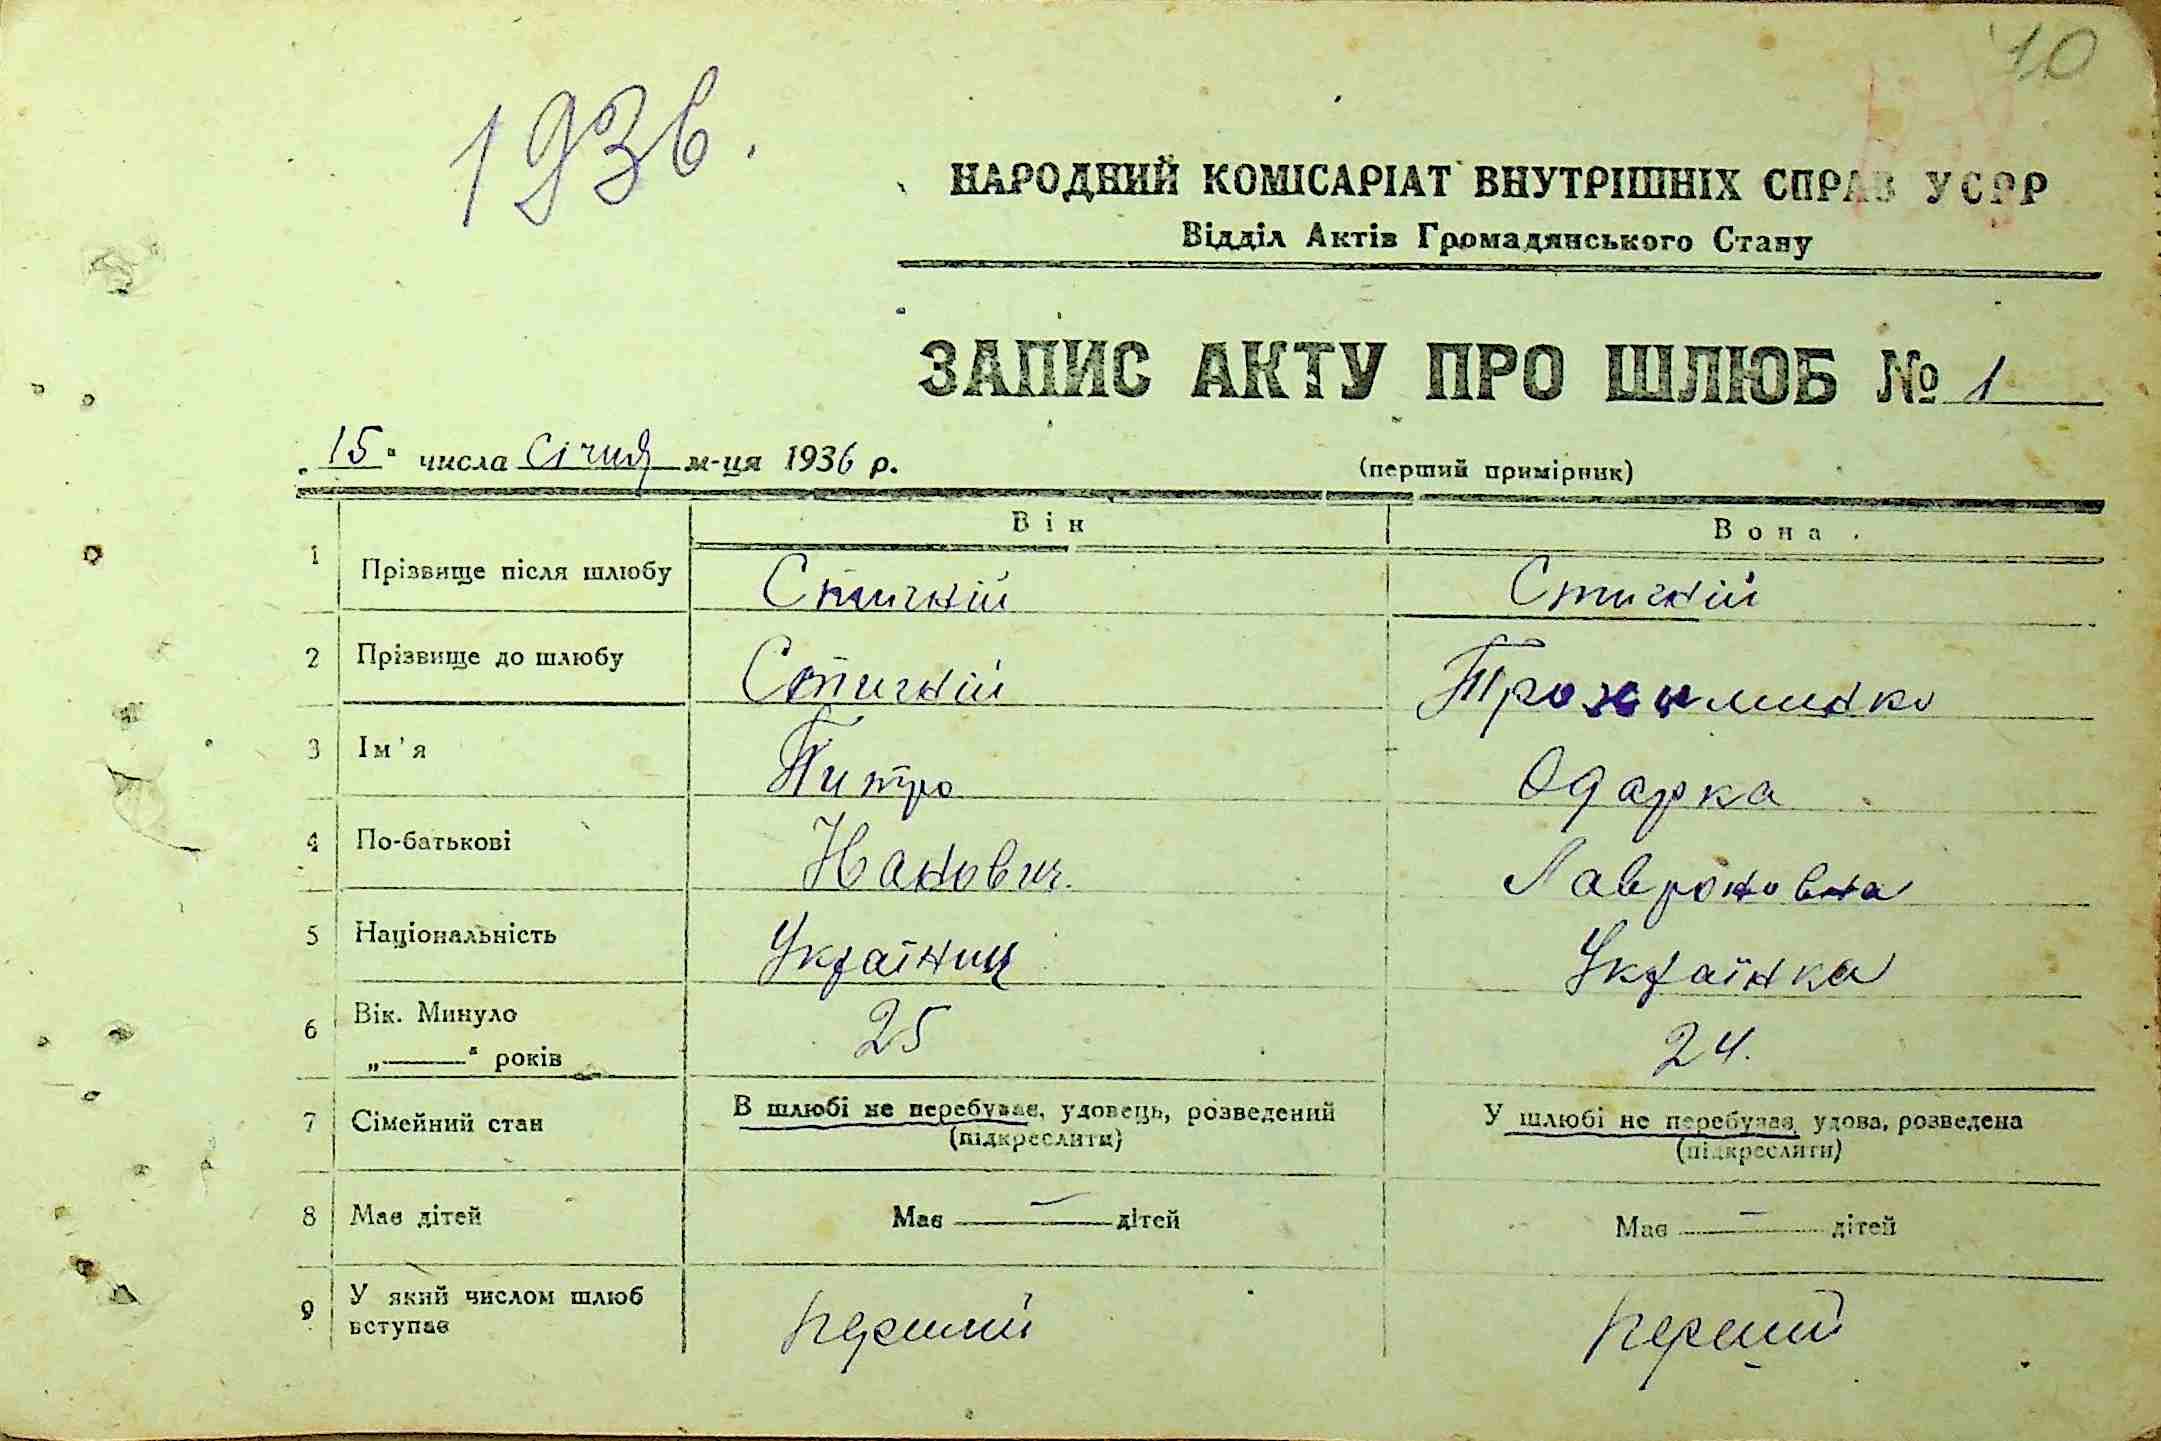 10
1936.
НАРОДНИЙ КОМІСАРІАТ ВНУТРІШНІХ СПРАВ УСРР
Відділ Актів Громадянського Стану
ЗАПИС АКТУ ПРО ШЛЮБ № 1
„15“ числа Січня м-ця 1936 р.
(перший примірник)
Він Вона
1 Прізвище після шлюбу
2 Прізвище до шлюбу
3 Ім'я Питро Одарка
4 По-батькові Лавроновна
5 Національність Україниц Українка
6 Вік. Минуло 25 24.
„———“ років
7 Сімейний стан В шлюбі не перебуває, удовець, розведений У шлюбі не перебуває, удова, розведена
(підкреслити) (підкреслити)
8 Має дітей Має — дітей Має — дітей
9 У який числом шлюб вступає перший перший